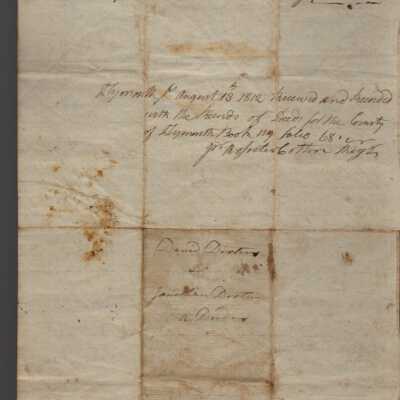 Plymouth Ss August 13th 1812 Received and recorded
with the Records of Deeds for the County
of Plymouth Book 119 folio 68
Pr Rossiter Cotton Regtr
David
to
Jonathan
a Deed